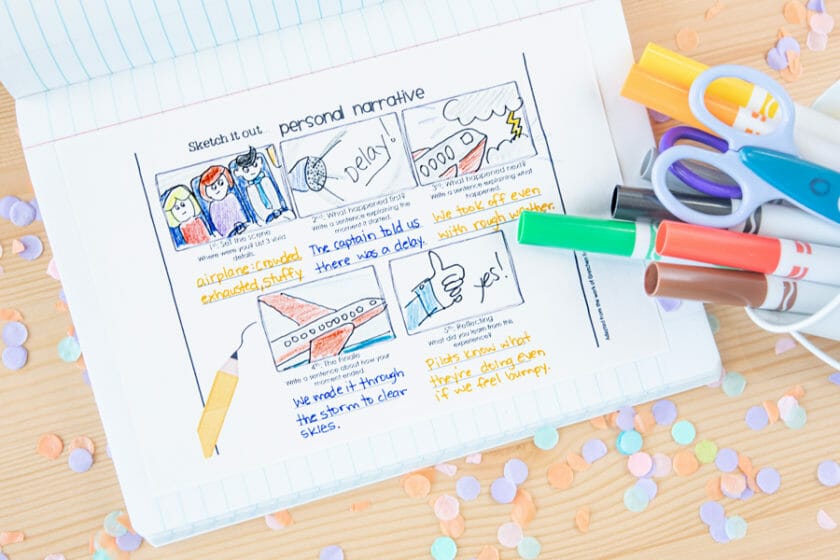 Sketch it out... personal narrative
Delay!
1st: Set the scene
Where were you? List 3 vivid
details.
airplane: crowded,
exhausted, stuffy
2nd: What happened first?
Write a sentence explaining the
moment it started.
The captain told us
there was a delay.
3rd: What happened next?
Write a sentence explaining what
happened.
We took off even
with rough weather.
4th: The finale
Write a sentence about how your
moment ended.
We made it through
the storm to clear
skies.
yes!
5th: Reflecting
What did you learn from this
experience?
Pilots know what
they're doing even
if we feel bumpy.
Adapted from the work of